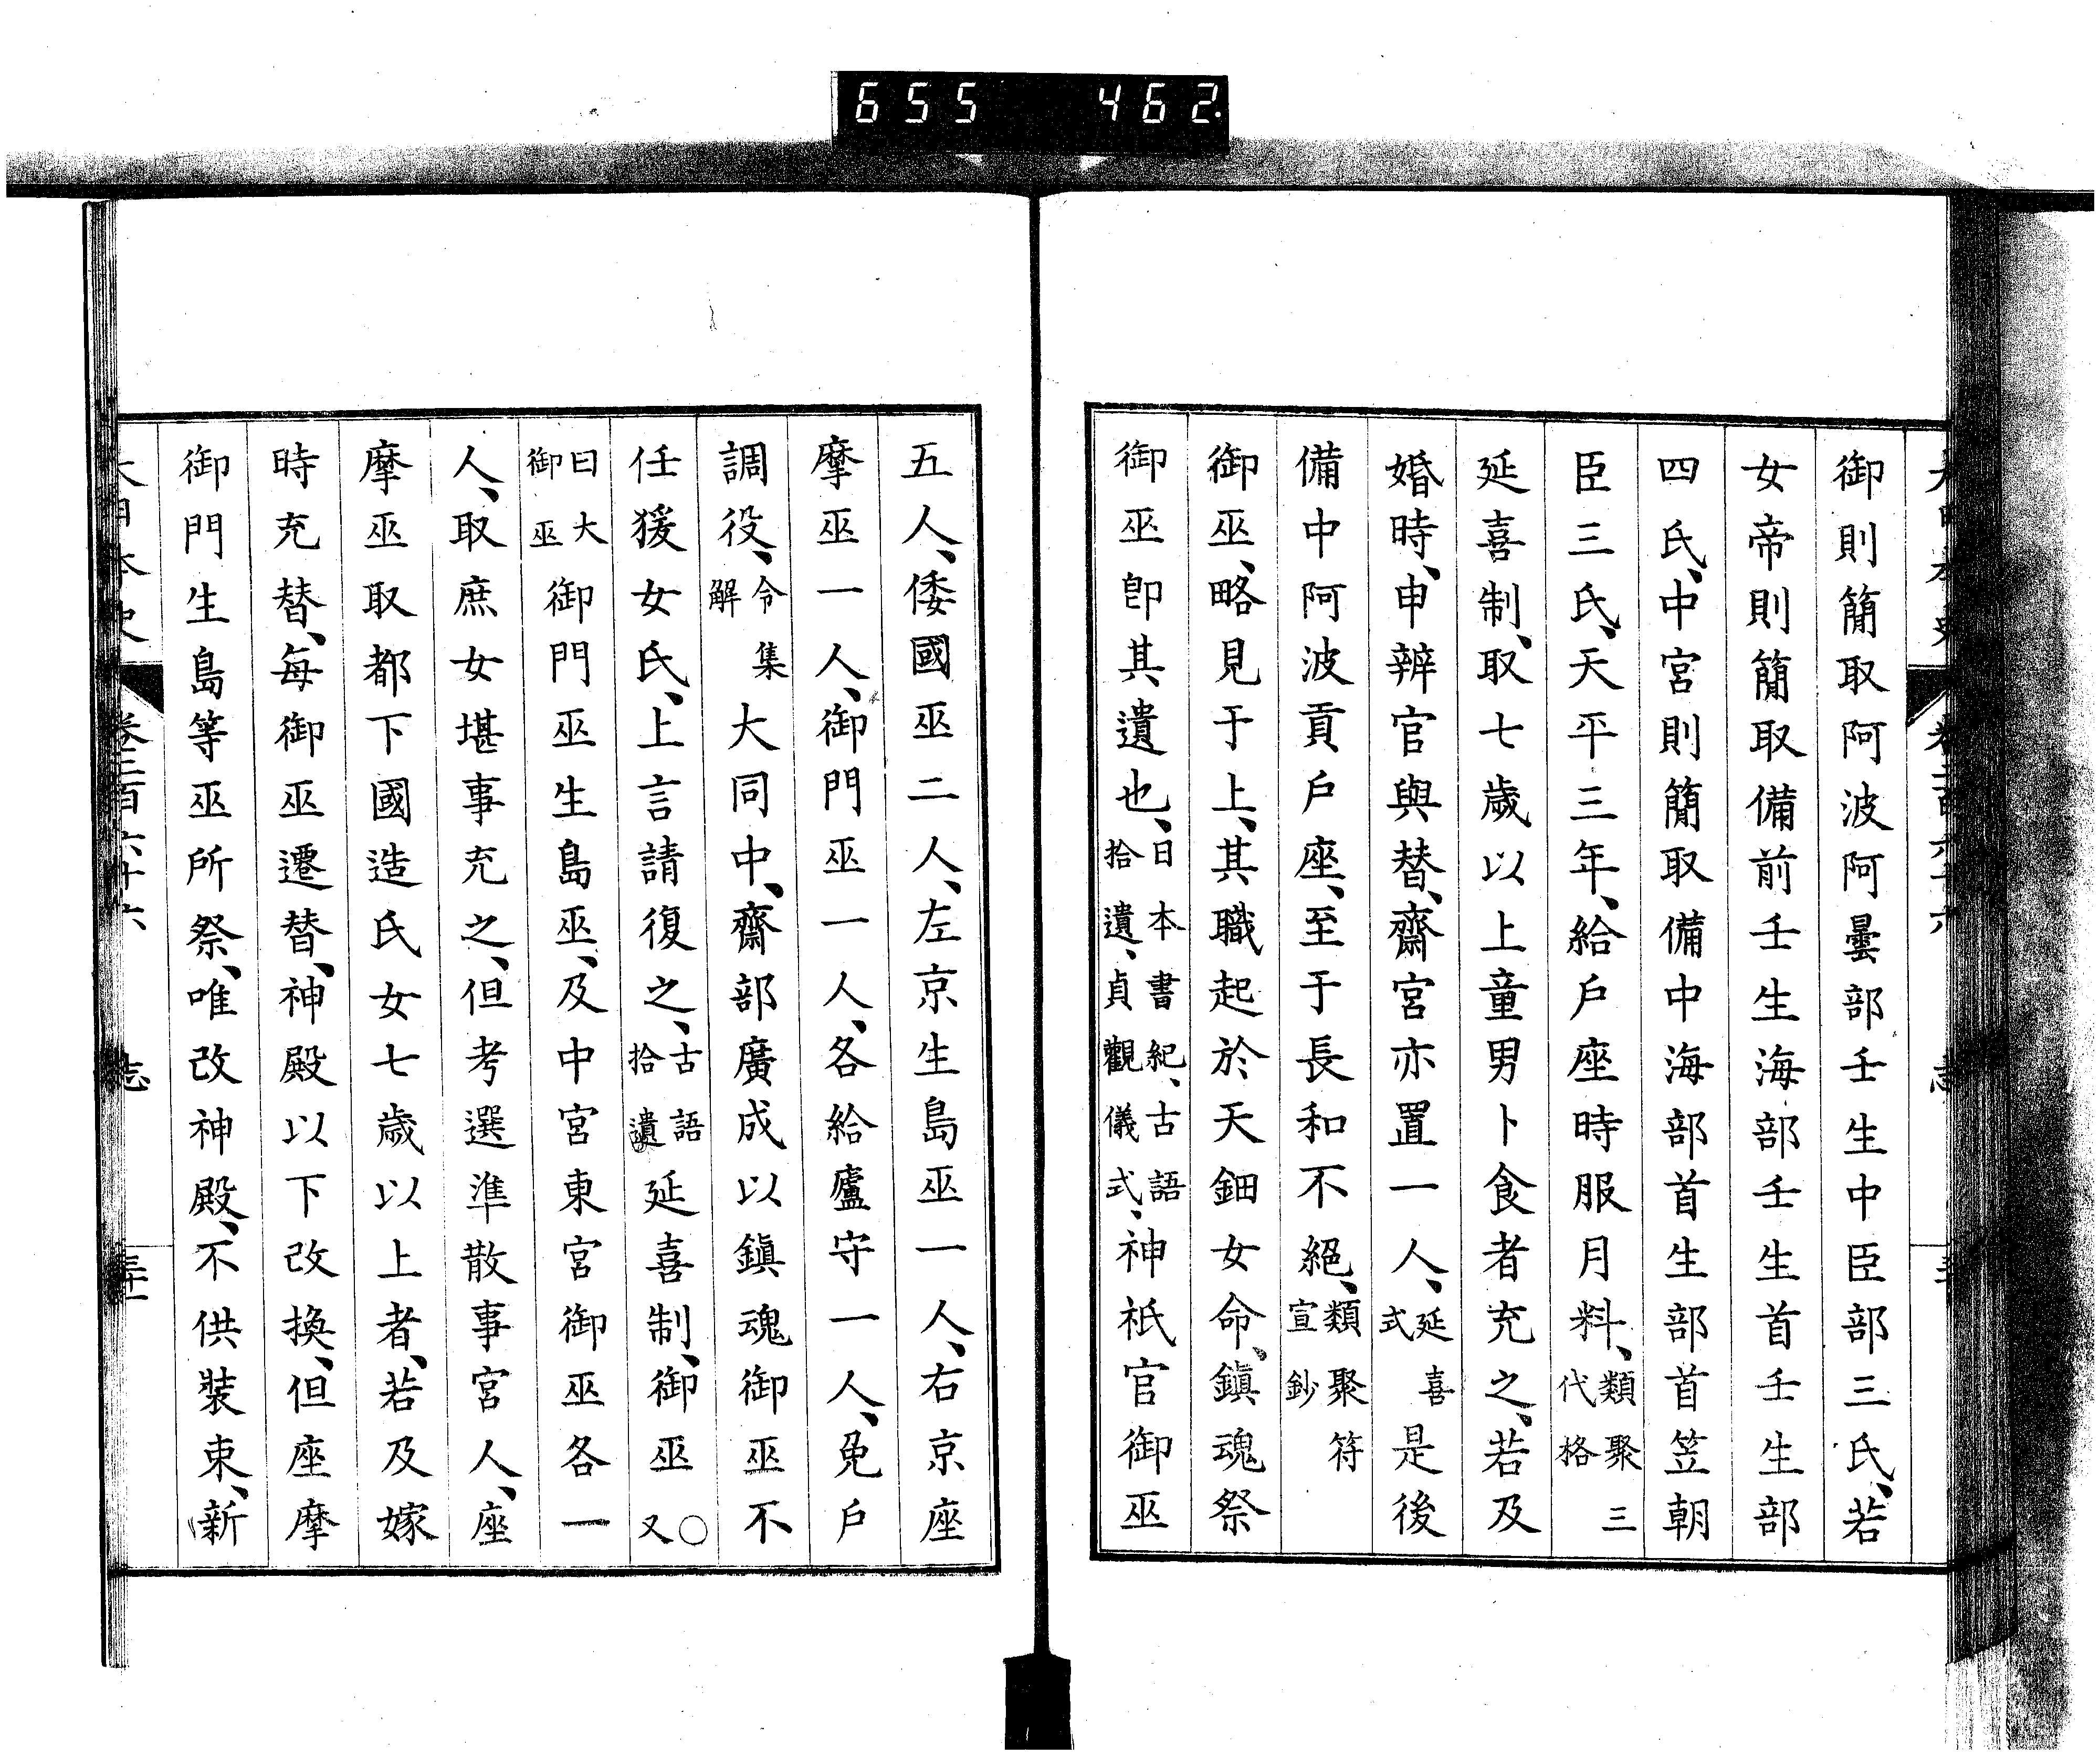 655 462
御則簡取阿波阿曇部壬生中臣部三氏、若
女帝則簡取備前壬生海部壬生首壬生部
四氏、中宮則簡取備中海部首生部首笠朝
臣三氏、天平三年、給戶座時服月料、類聚三代格
延喜制、取七歲以上童男卜食者充之、若及
婚時、申辨官與替、齋宮亦置一人、延喜式是後
備中阿波貢戶座、至于長和不絕、類聚符宣鈔
御巫、略見于上、其職起於天鈿女命、鎭魂祭
御巫卽其遺也、日本書紀、古語拾遺、貞觀儀式、神祇官御巫
五人、倭國巫二人、左京生島巫一人、右京座
摩巫一人、御門巫一人、各給廬守一人、免戶
調役、令集解大同中、齋部廣成以鎭魂御巫不
任猨女氏、上言請復之、古語拾遺延喜制、御巫○又
曰大御巫御門巫生島巫、及中宮東宮御巫各一
人、取庶女堪事充之、但考選準散事宮人、座
摩巫取都下國造氏女七歲以上者、若及嫁
時充替、每御巫遷替、神殿以下改換、但座摩
御門生島等巫所祭、唯改神殿、不供裝束、新
大日本史 卷三百六十六 志